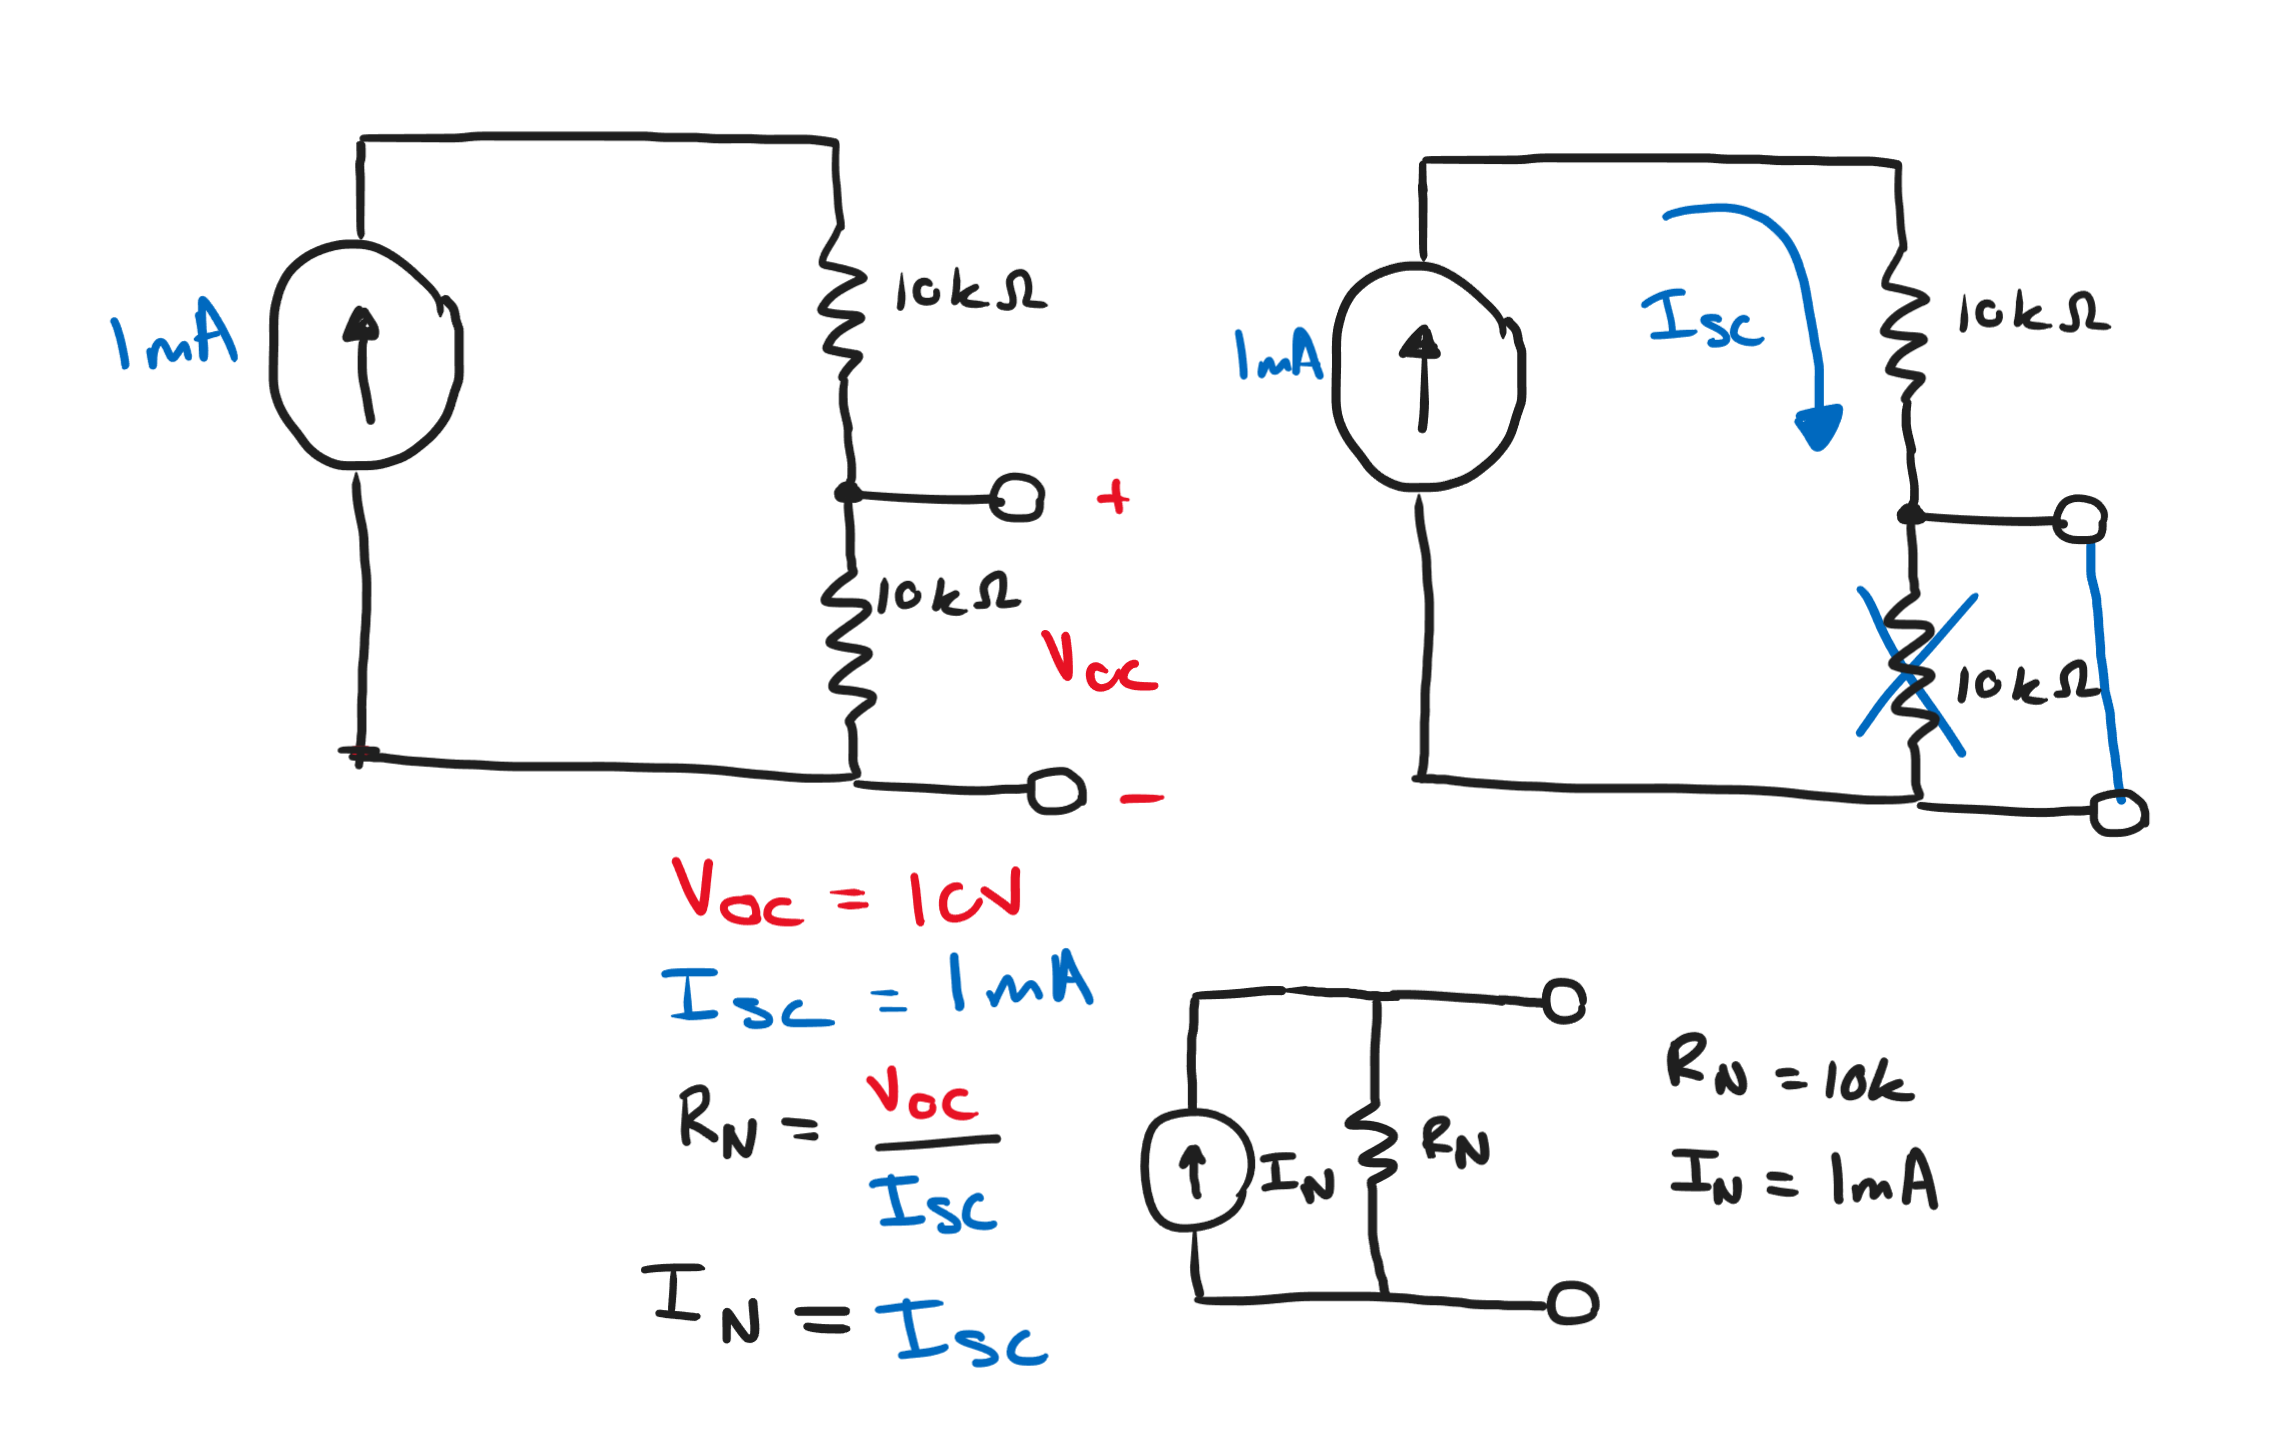 1mA
10kΩ
+
10kΩ
Voc
−
1mA
Isc
10kΩ
10kΩ
Voc = 10V
Isc = 1mA
RN = Voc / Isc
IN = Isc
IN
RN
RN = 10k
IN = 1mA